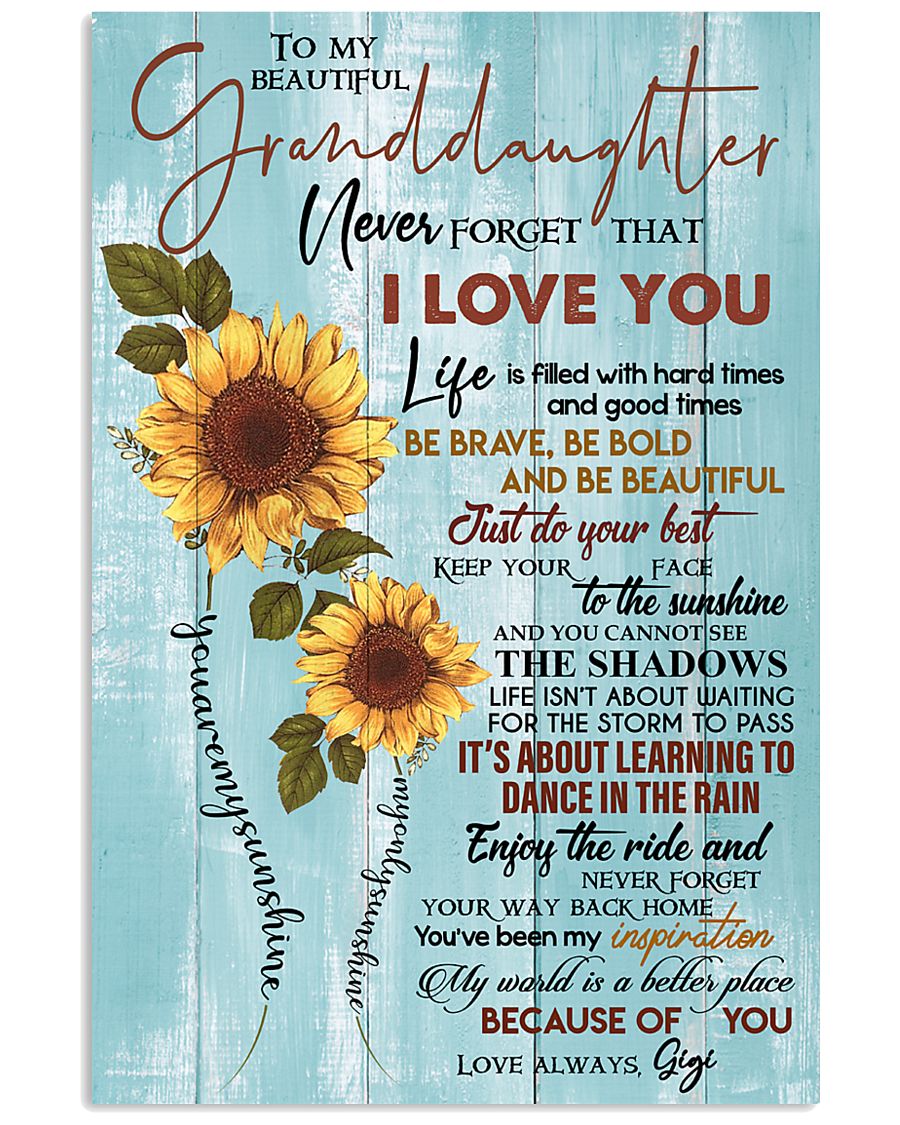 To my
beautiful
Granddaughter
Never forget that
I LOVE YOU
Life is filled with hard times
and good times
BE BRAVE, BE BOLD
AND BE BEAUTIFUL
Just do your best
Keep your face
to the sunshine
and you cannot see
THE SHADOWS
LIFE ISN'T ABOUT WAITING
FOR THE STORM TO PASS
IT'S ABOUT LEARNING TO
DANCE IN THE RAIN
Enjoy the ride and
never forget
your way back home
You've been my inspiration
My world is a better place
BECAUSE OF YOU
Love always, Gigi
youaremysunshine
myonlysunshine